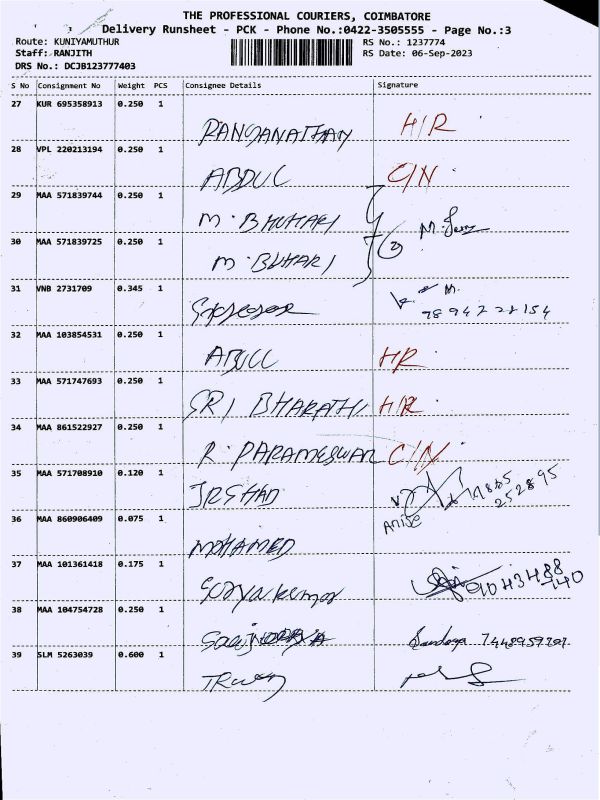 THE PROFESSIONAL COURIERS, COIMBATORE
Delivery Runsheet - PCK - Phone No.:0422-3505555 - Page No.:3
Route: KUNIYAMUTHUR RS No.: 1237774
Staff: RANJITH RS Date: 06-Sep-2023
DRS No.: DCJB123777403
S No Consignment No Weight PCS Consignee Details Signature
27 KUR 695358913 0.250 1
RANGANATHAN H/R
28 VPL 220213194 0.250 1
ABDUL C/N
29 MAA 571839744 0.250 1
M. BHUHARI
30 MAA 571839725 0.250 1
M. BUHARI (2)
31 VNB 2731709 0.345 1
M.
32 MAA 103854531 0.250 1
HR
33 MAA 571747693 0.250 1
SRI BHARATHI H/R
34 MAA 861522927 0.250 1
R. PARAMESWAR C/N
35 MAA 571708910 0.120 1
IRSHAD
36 MAA 860906409 0.075 1
MOHAMED
37 MAA 101361418 0.175 1
Suryakumar
38 MAA 104754728 0.250 1
39 SLM 5263039 0.600 1